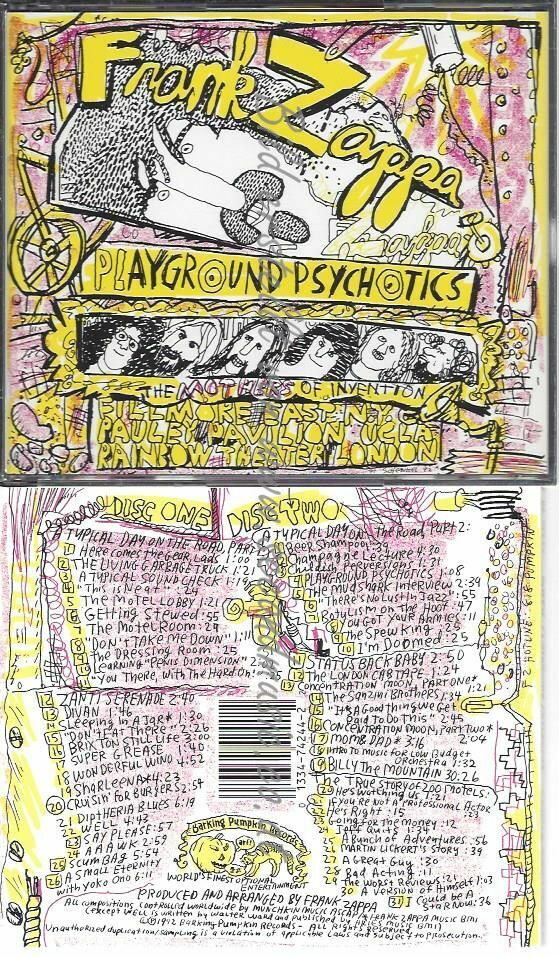 Frank Zappa
PLAYGROUND PSYCHOTICS
THE MOTHERS OF INVENTION
FILLMORE EAST, N.Y.
PAULEY PAVILION, UCLA
RAINBOW THEATER, LONDON
DISC ONE
A TYPICAL DAY ON THE ROAD, PART 1:
1 Here comes the Gear, Lads 1:00
2 THE LIVING GARBAGE TRUCK 1:21
3 A TYPICAL SOUND CHECK 1:19
4 "This is Neat" :24
5 The MOTEL LOBBY 1:21
6 GETTING Stewed :55
7 The Motel Room :29
8 "DON'T TAKE ME DOWN" 1:11
9 The DRESSING ROOM :25
10 Learning "Penis Dimension" 2:02
11 "You There, with The Hard On!" :25
12 ZANTI SERENADE 2:40
13 DIVAN 1:46
14 Sleeping In A Jar* 1:30
15 "DON'T EAT There" 2:26
16 BRIXTON STILL LIFE 3:00
17 SUPER GREASE 1:40
18 WONDERFUL WINO 4:52
19 SHARLEENA* 4:23
20 CRUISIN' For BURGERS 2:54
21 DIPTHERIA BLUES 6:19
22 WELL 4:43
23 SAY PLEASE :57
24 AAAWK 2:59
25 SCUMBAG 5:54
26 A SMALL ETERNITY
with Yoko Ono 6:11
DISC TWO
A TYPICAL DAY ON The Road, Part 2:
1 Beer Shampoo :39
2 Champagne Lecture 4:30
3 Childish Perversions 1:31
4 PLAYGROUND PSYCHOTICS 1:08
5 The MUDSHARK INTERVIEW 2:39
6 "There's No Lust in Jazz" :55
7 Botulism on the Hoof :47
8 You Got Your Armies :11
9 The Spew King :25
10 I'm Doomed :25
11 STATUS BACK BABY 2:50
12 The LONDON CAB TAPE 1:24
13 Concentration Moon, PART ONE* 1:21
14 The Sanzini Brothers 1:34
15 "It's A Good Thing We Get
Paid To Do This" 2:45
16 Concentration Moon, PART TWO* 2:04
17 MOM & DAD* 3:16
18 Intro to Music for Low Budget
Orchestra 1:32
19 BILLY The MOUNTAIN 30:26
The True STORY OF 200 MOTELS:
20 He's Watching Us 1:21
21 If you're Not A Professional Actor :23
22 He's Right :15
23 Going for The Money :12
24 Jeff Quits 1:34
25 A Bunch of Adventures :56
26 MARTIN LICKERT'S STORY :39
27 A Great Guy :30
28 Bad Acting :11
29 The Worst Reviews :21
30 A Version of Himself 1:03
31 I Could Be A
Star Now :36
0 13347 4244-2
Barking Pumpkin Records
WORLD'S FINEST OPTIONAL
ENTERTAINMENT
PRODUCED AND ARRANGED BY FRANK ZAPPA
All compositions controlled worldwide by Munchkin Music ASCAP (*FRANK ZAPPA MUSIC BMI)
(except WELL is written by Walter Ward and published by ARIES MUSIC BMI)
©℗1992 Barking Pumpkin Records - ALL Rights Reserved
Unauthorized duplication/sampling is a violation of applicable laws and subject to prosecution.
FZ HOTLINE: 818-PUMPKIN